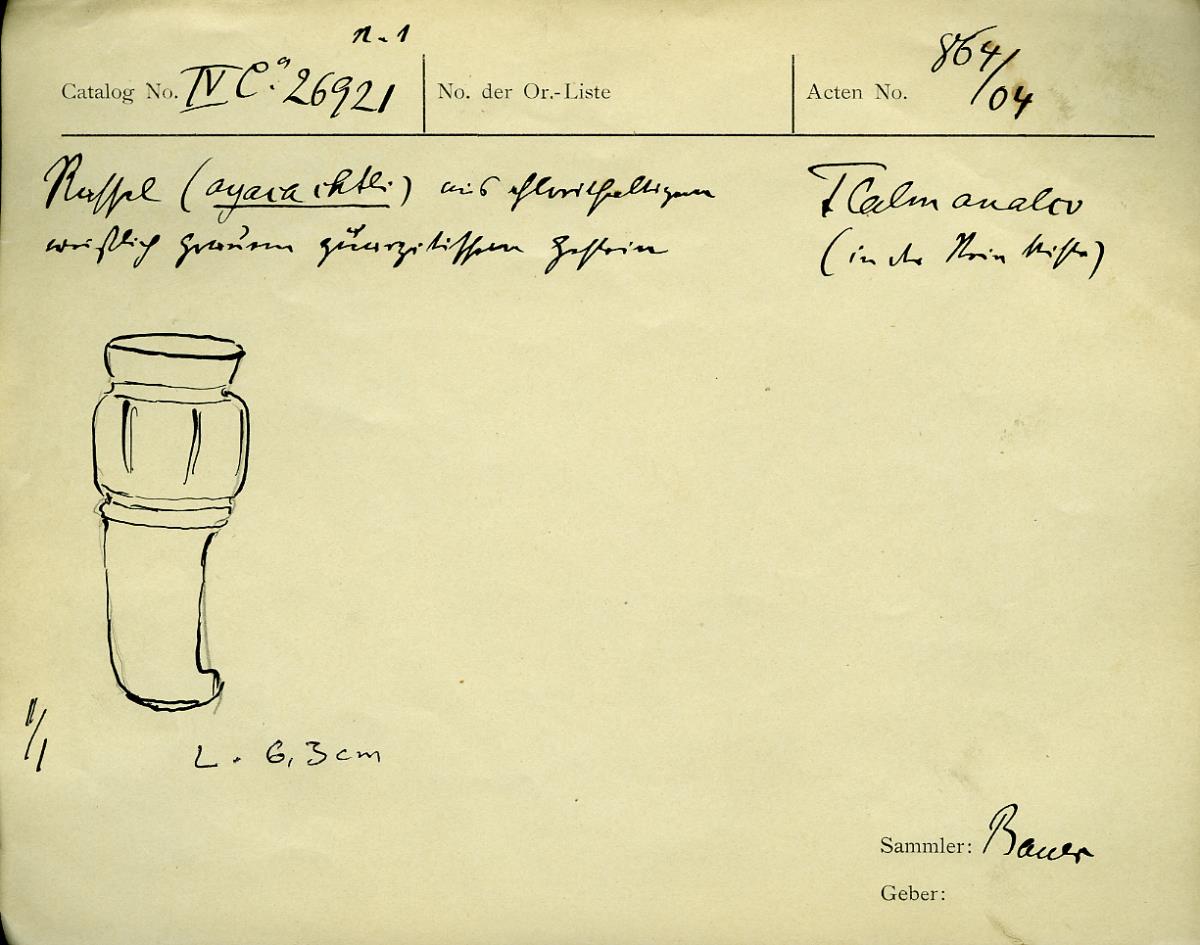 n. 1
Catalog No. IV Ca. 26921
No. der Or.-Liste
Acten No. 864/04
Rassel (ayacachtli) aus chlorithaltigem
weisslich grauem quarzitischem Gestein
Tlalmanalco
(in der Kiste)
1/1
L. 6,3 cm
Sammler: Bauer
Geber: